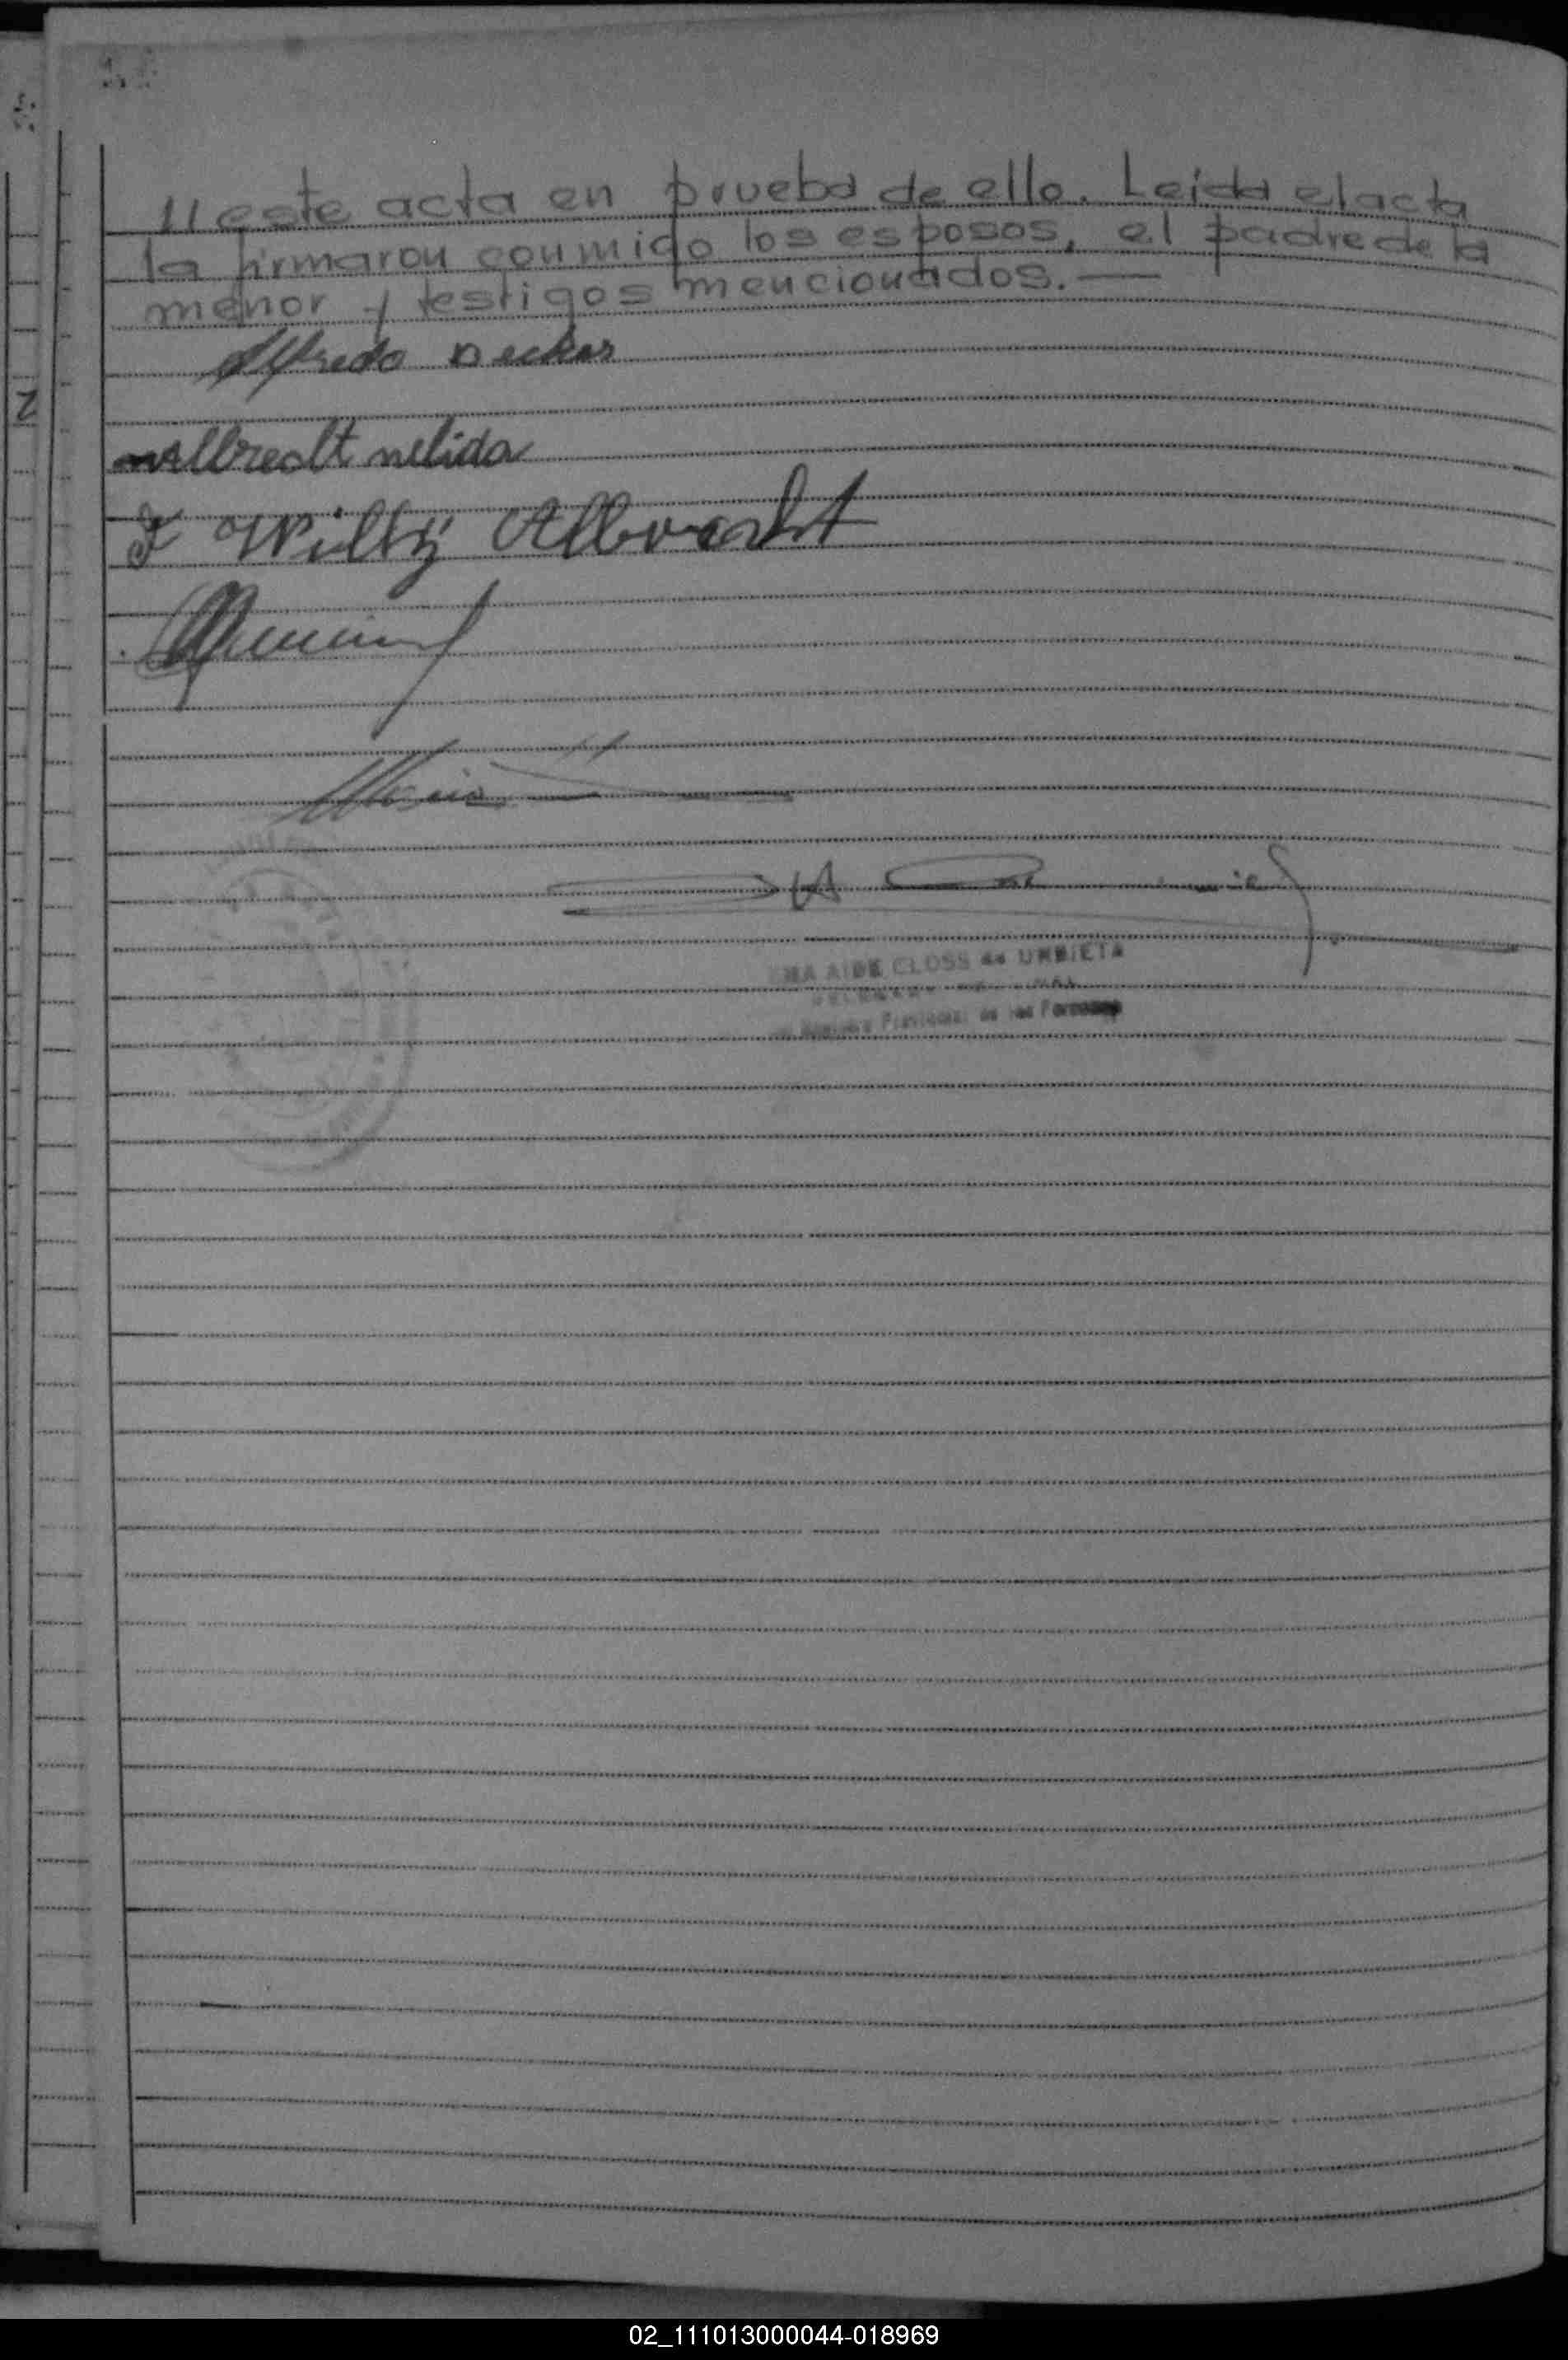 // este acta en prueba de ello. Leida el acta
la firmaron conmigo los esposos, el padre de la
menor y testigos mencionados. —
Alfredo Decker
Albrecht nelida
F Willy Albrecht
AIDE CLOSS de URBIETA
Provincial de las Personas
02_111013000044-018969